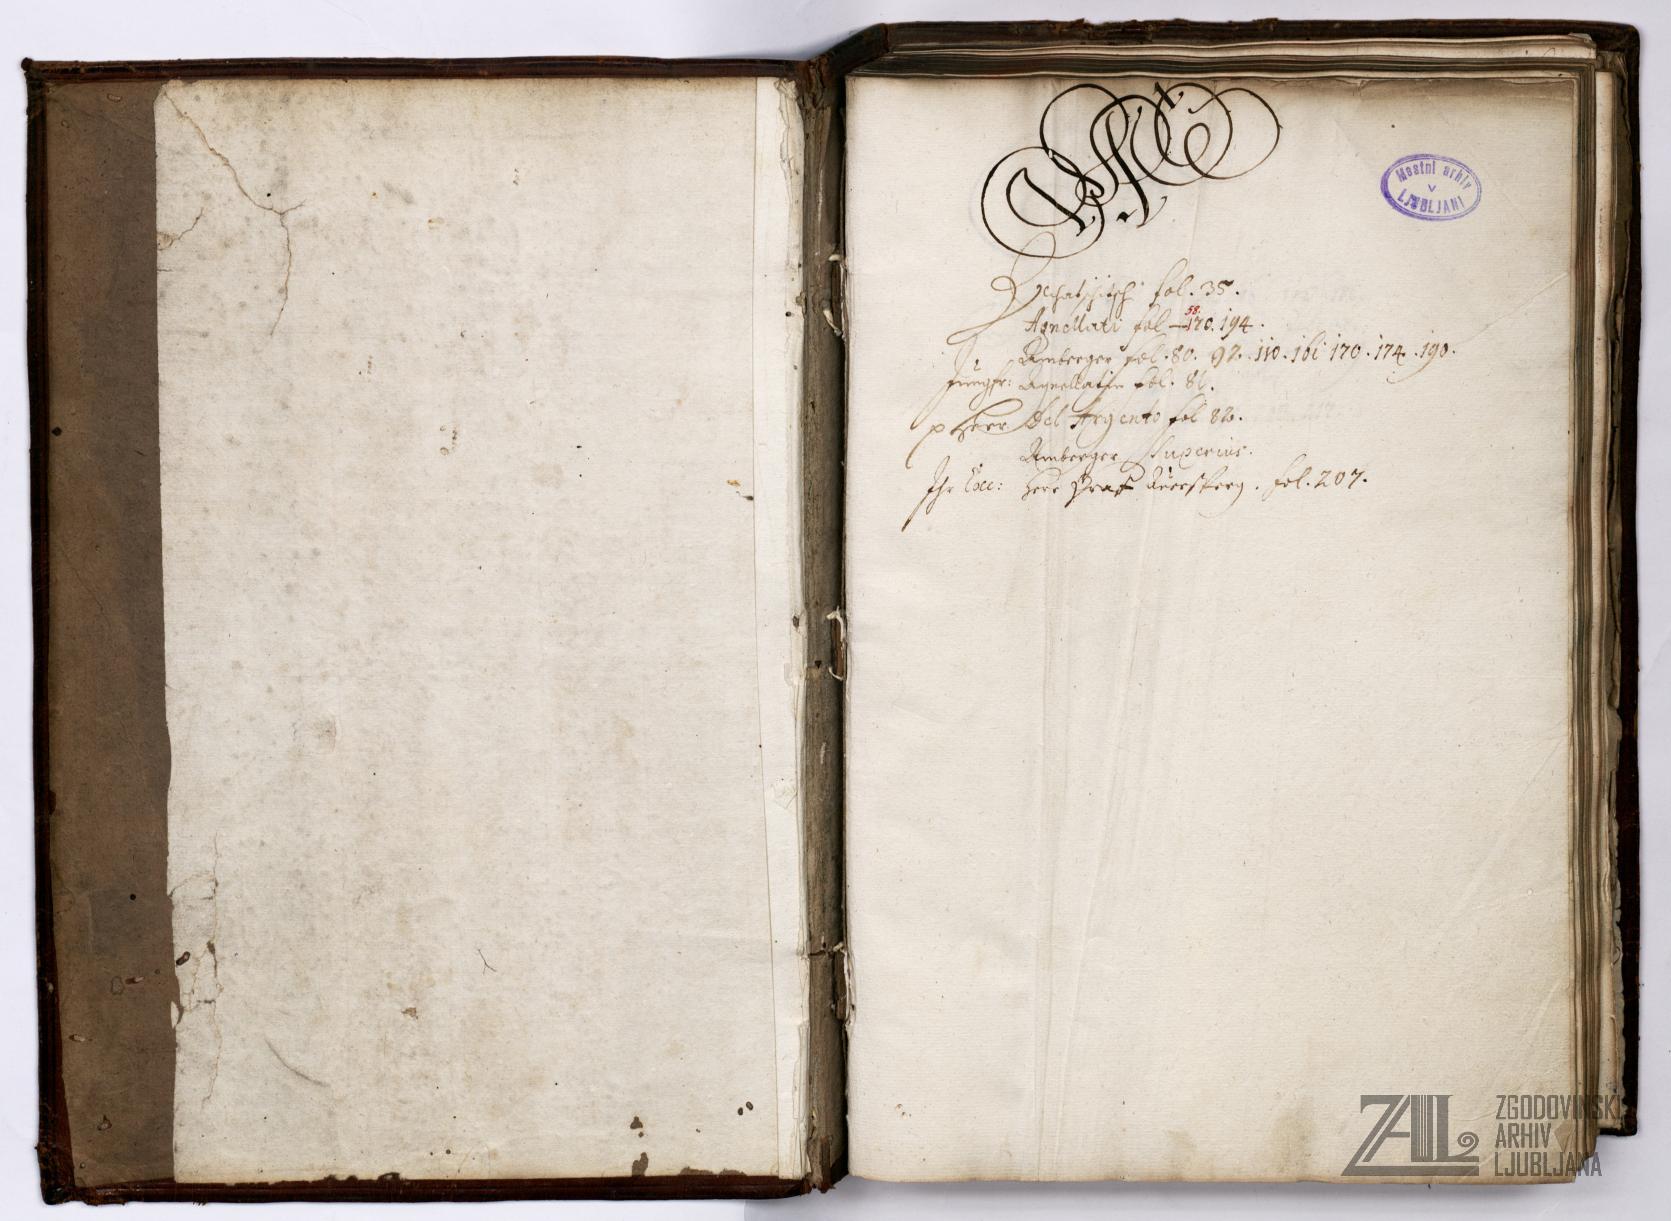 A
Mestni arhiv
v
LJUBLJANI
fol. 35.
Agnellati fol 58. 170. 194.
Amberger fol. 80. 92. 110. 161 170. 174. 190.
Jungfr: Agnellatin fol. 81.
Herr Del Argento fol 82.
Amberger Superius.
Ihr Exc: Herr Graf Auersperg. fol. 207.
ZAL
ZGODOVINSKI
ARHIV
LJUBLJANA